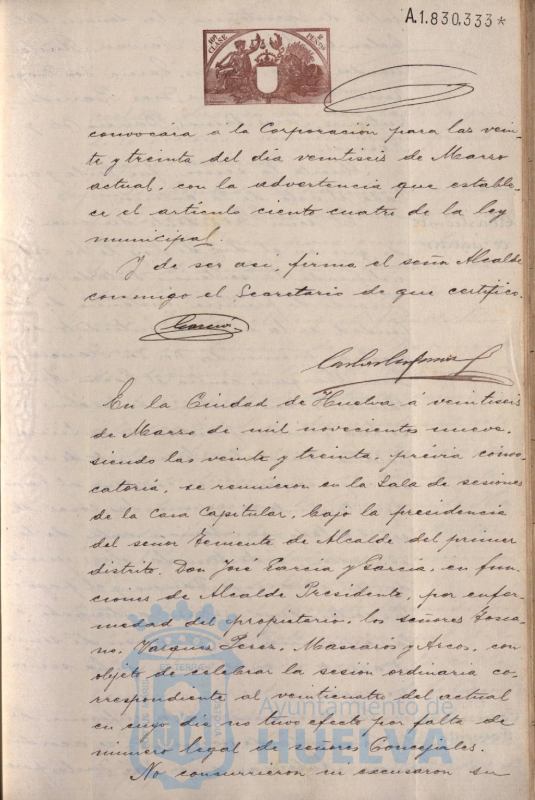 A.1.830.333*
10ª CLASE
2 PESETAS
convocára a la Corporación para las vein-
te y treinta del dia veintiseis de Marzo
actual, con la advertencia que estable-
ce el artículo ciento cuatro de la ley
municipal.
Y de ser asi, firma el señor Alcalde
conmigo el Secretario de que certifico.
García
En la Ciudad de Huelva á veintiseis
de Marzo de mil novecientos nueve,
siendo las veinte y treinta, prévia convo-
catoria, se reunieron en la Sala de sesiones
de la Casa Capitular, bajo la presidencia
del señor Teniente de Alcalde del primer
distrito, Don José García y García, en fun-
ciones de Alcalde Presidente, por enfer-
medad del propietario, los señores Tosca-
no, Vazquez Perez, Mascarós y Arcos, con
objeto de celebrar la sesión ordinaria co-
rrespondiente al veinticuatro del actual
en cuyo dia no tuvo efecto por falta de
número legal de señores Concejales.
No concurrieron ni excusaron su
Ayuntamiento de
HUELVA